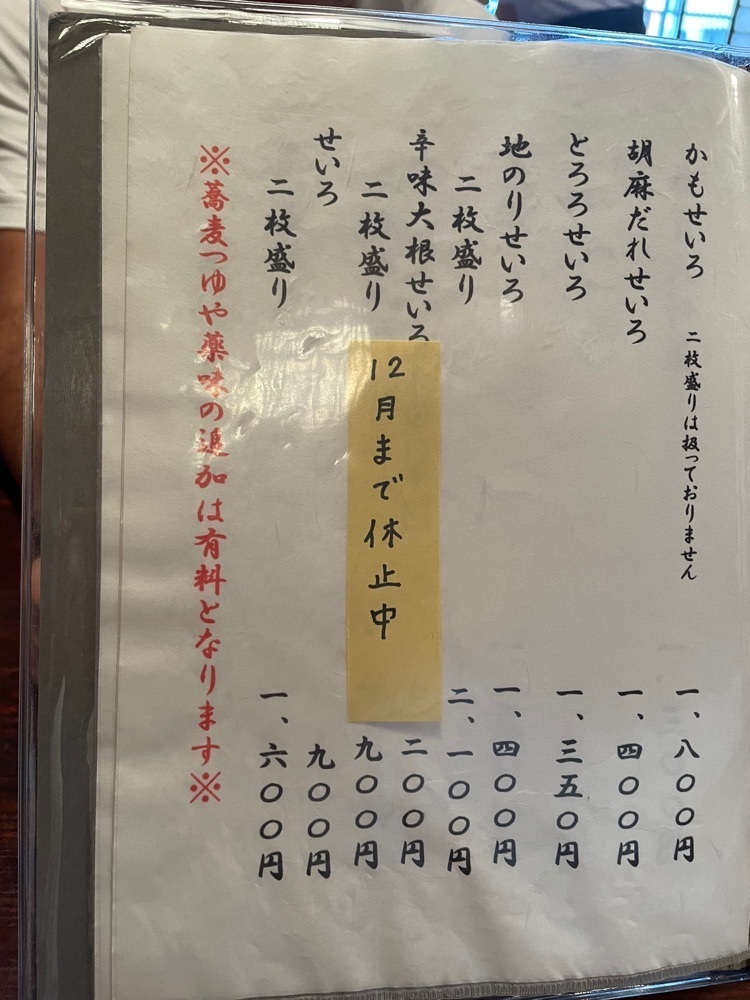 かもせいろ 二枚盛りは扱っておりません 一、八〇〇円
胡麻だれせいろ 一、四〇〇円
とろろせいろ 一、三五〇円
地のりせいろ 一、四〇〇円
二枚盛り 二、一〇〇円
辛味大根せいろ 二〇〇円
二枚盛り 九〇〇円
12月まで休止中
せいろ 九〇〇円
二枚盛り 一、六〇〇円
※蕎麦つゆや薬味の追加は有料となります※